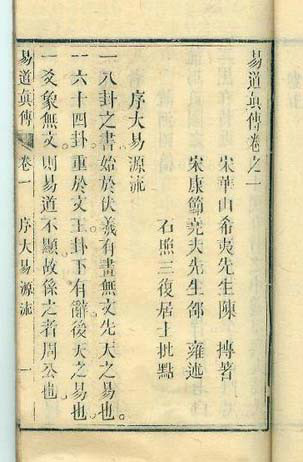 易道眞傳卷之一
宋華山希夷先生陳 摶著
宋康節堯夫先生邵 雍述
石照三復居士批點
序大易源流
一八卦之書始於伏羲有畫無文先天之易也。
一六十四卦重於文王卦下有辭後天之易也。
一爻象無文則易道不顯故係之者周公也
易道眞傳 卷一 序大易源流 一